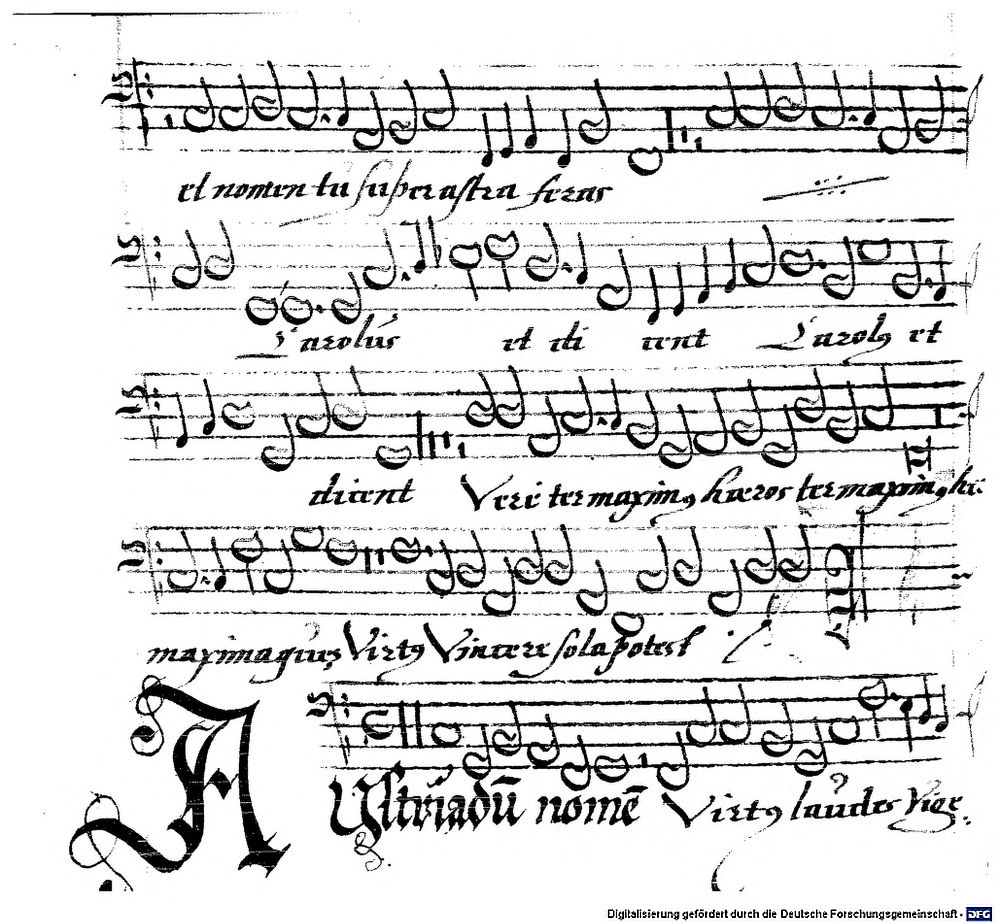 et nomen tu super astra feras
Carolus et di cent Carolꝰ et
dicent Vere ter maximꝰ hæros ter maximꝰ hæ
maximaqȝ Virtꝰ Vincere sola potest
AUstriadū nomē Virtꝰ laudes Vige
Digitalisierung gefördert durch die Deutsche Forschungsgemeinschaft - DFG